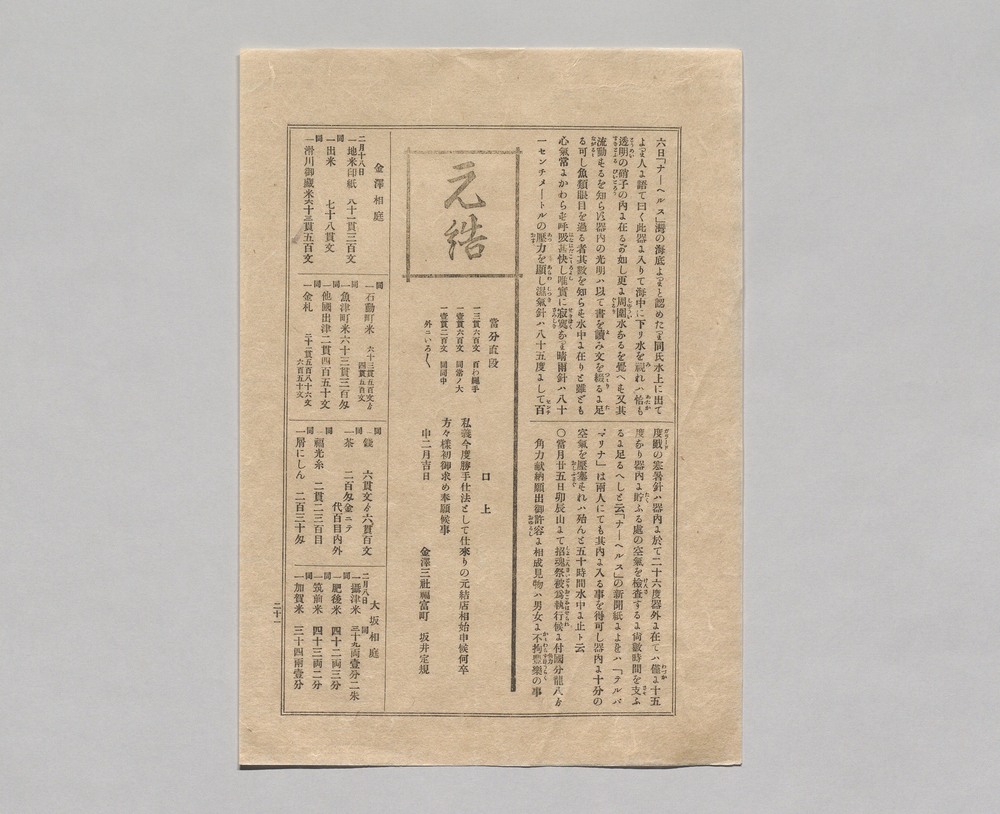 六日「ナーヘルス」灣の海底よりと認めたり同氏水上に出て
より人よ語て曰く此器よ入りて海中に下り水を視れハ恰も
透明の硝子の内よ在るが如し更よ周圍水なるを覺へも又其
流動するを知らに器內の光明ハ以て書を讀み文を綴るよ足
る可し魚類眼目を過る者其數を知らも水中よ在りと雖ども
心氣常よかわらも呼吸甚快し唯實に寂寞なり晴雨針ハ八十
一センチメートルの壓力を顯し溫氣針ハ八十五度よして百
度戝の寒暑針ハ器內よ於て二十六度器外よ在てハ僅よ十五
度なり器內よ貯ふる處の空氣を檢査するよ尙數時間を支ふ
るよ足るへしと云「ナーヘルス」の新聞紙よよれハ「テルバ
マリナ」は兩人にても其內よ入る事を得可し器內よ十分の
空氣を壓塞すれハ殆んと五十時間水中よ止ト云
○當月廿五日卯辰山よて招魂祭被爲執行候よ付國分龍八ゟ
角力献納願出御許容よ相成見物ハ男女よ不拘豐樂の事
元結
當分直段
一三貫六百文 百わ繩手
一壹貫六百文 同常ノ大
一壹貫二百文 同同中
外ニいろ〱
口上
私義今度勝手仕法として仕來りの元結店相始申候何卒
方々樣初御求め奉願候事
申二月吉日
金澤三社福富町 坂井定規
金澤相庭
二月十八日
一地米印紙 八十一貫三百文
同
一出米 七十八貫文
同
一滑川御藏米六十三貫五百文
同
一石動町米 六十三貫五百文ゟ
四貫五百文
同
一魚津町米六十三貫三百匁
同
一他國出津二貫四百五十文
同
一金札 二十二貫五百八十六文
六百五十文
同
一錢 六貫文ゟ六貫百文
同
一茶 二百匁金ニテ
代百目內外
同
一福光糸 二貫二三百目
同
一屑にしん 二百三十匁
大坂相庭
二月八日
一攝津米 三十九兩壹分二朱
同
一肥後米 四十二兩三分
同
一筑前米 四十三兩二分
同
一加賀米 三十四兩壹分
二十一